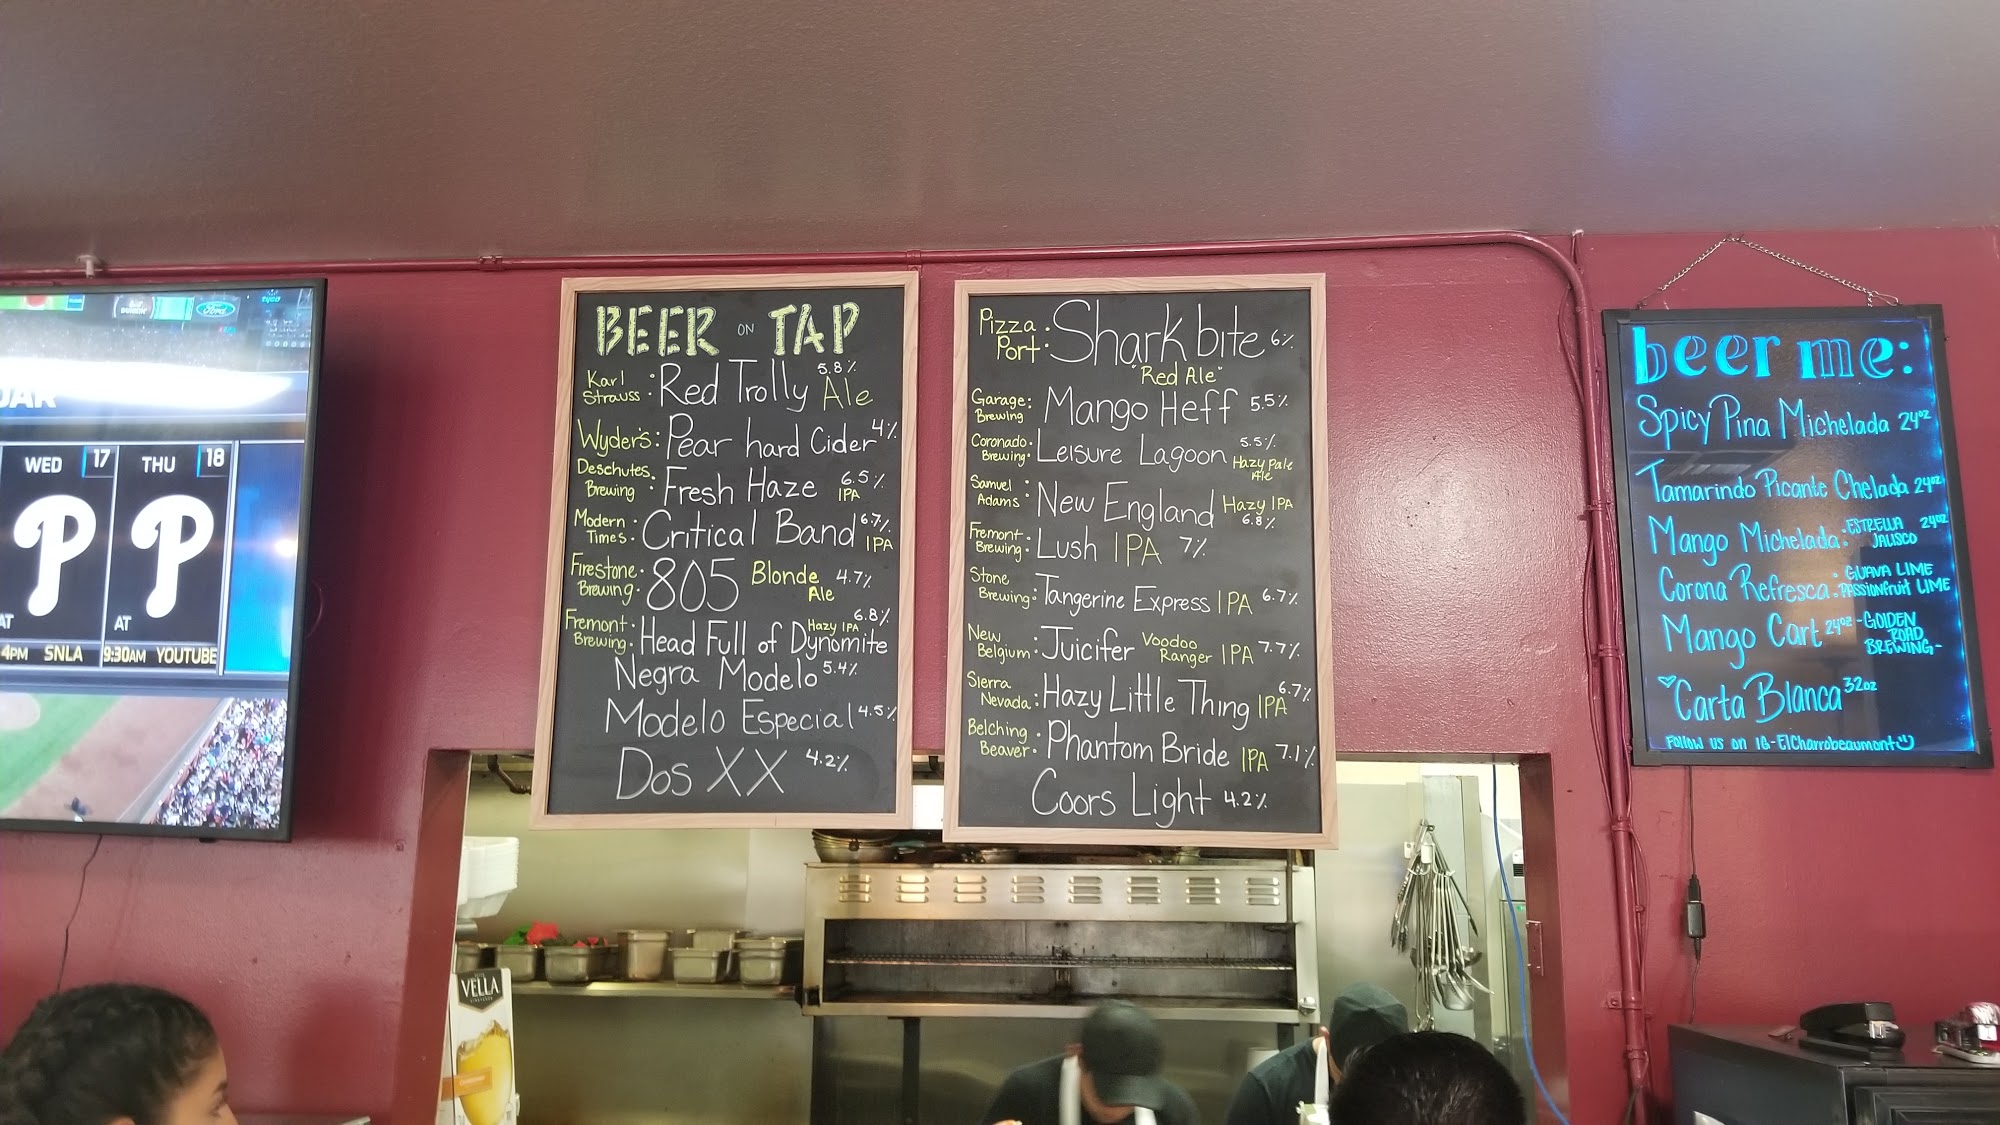 Ford
DAR
WED 17
THU 18
P
P
AT
AT
4PM SNLA
9:30AM YOUTUBE
BEER ON TAP
Karl Strauss: Red Trolly Ale 5.8%
Wyder's: Pear hard Cider 4%
Deschutes Brewing: Fresh Haze 6.5% IPA
Modern Times: Critical Band 6.7% IPA
Firestone Brewing: 805 Blonde Ale 4.7%
Fremont Brewing: Head Full of Dynomite Hazy IPA 6.8%
Negra Modelo 5.4%
Modelo Especial 4.5%
Dos XX 4.2%
Pizza Port: Shark bite 6%
"Red Ale"
Garage Brewing: Mango Heff 5.5%
Coronado Brewing: Leisure Lagoon 5.5% Hazy Pale Ale
Samuel Adams: New England Hazy IPA 6.8%
Fremont Brewing: Lush IPA 7%
Stone Brewing: Tangerine Express IPA 6.7%
New Belgium: Juicifer Voodoo Ranger IPA 7.7%
Sierra Nevada: Hazy Little Thing IPA 6.7%
Belching Beaver: Phantom Bride IPA 7.1%
Coors Light 4.2%
beer me:
Spicy Pina Michelada 24oz
Tamarindo Picante Chelada 24oz
Mango Michelada: ESTRELLA JALISCO 24oz
Corona Refresca: GUAVA LIME PASSIONfruit LIME
Mango Cart 24oz -GOLDEN ROAD BREWING-
Carta Blanca 32oz
Follow us on IG-ElCharrobeaumont
VELLA